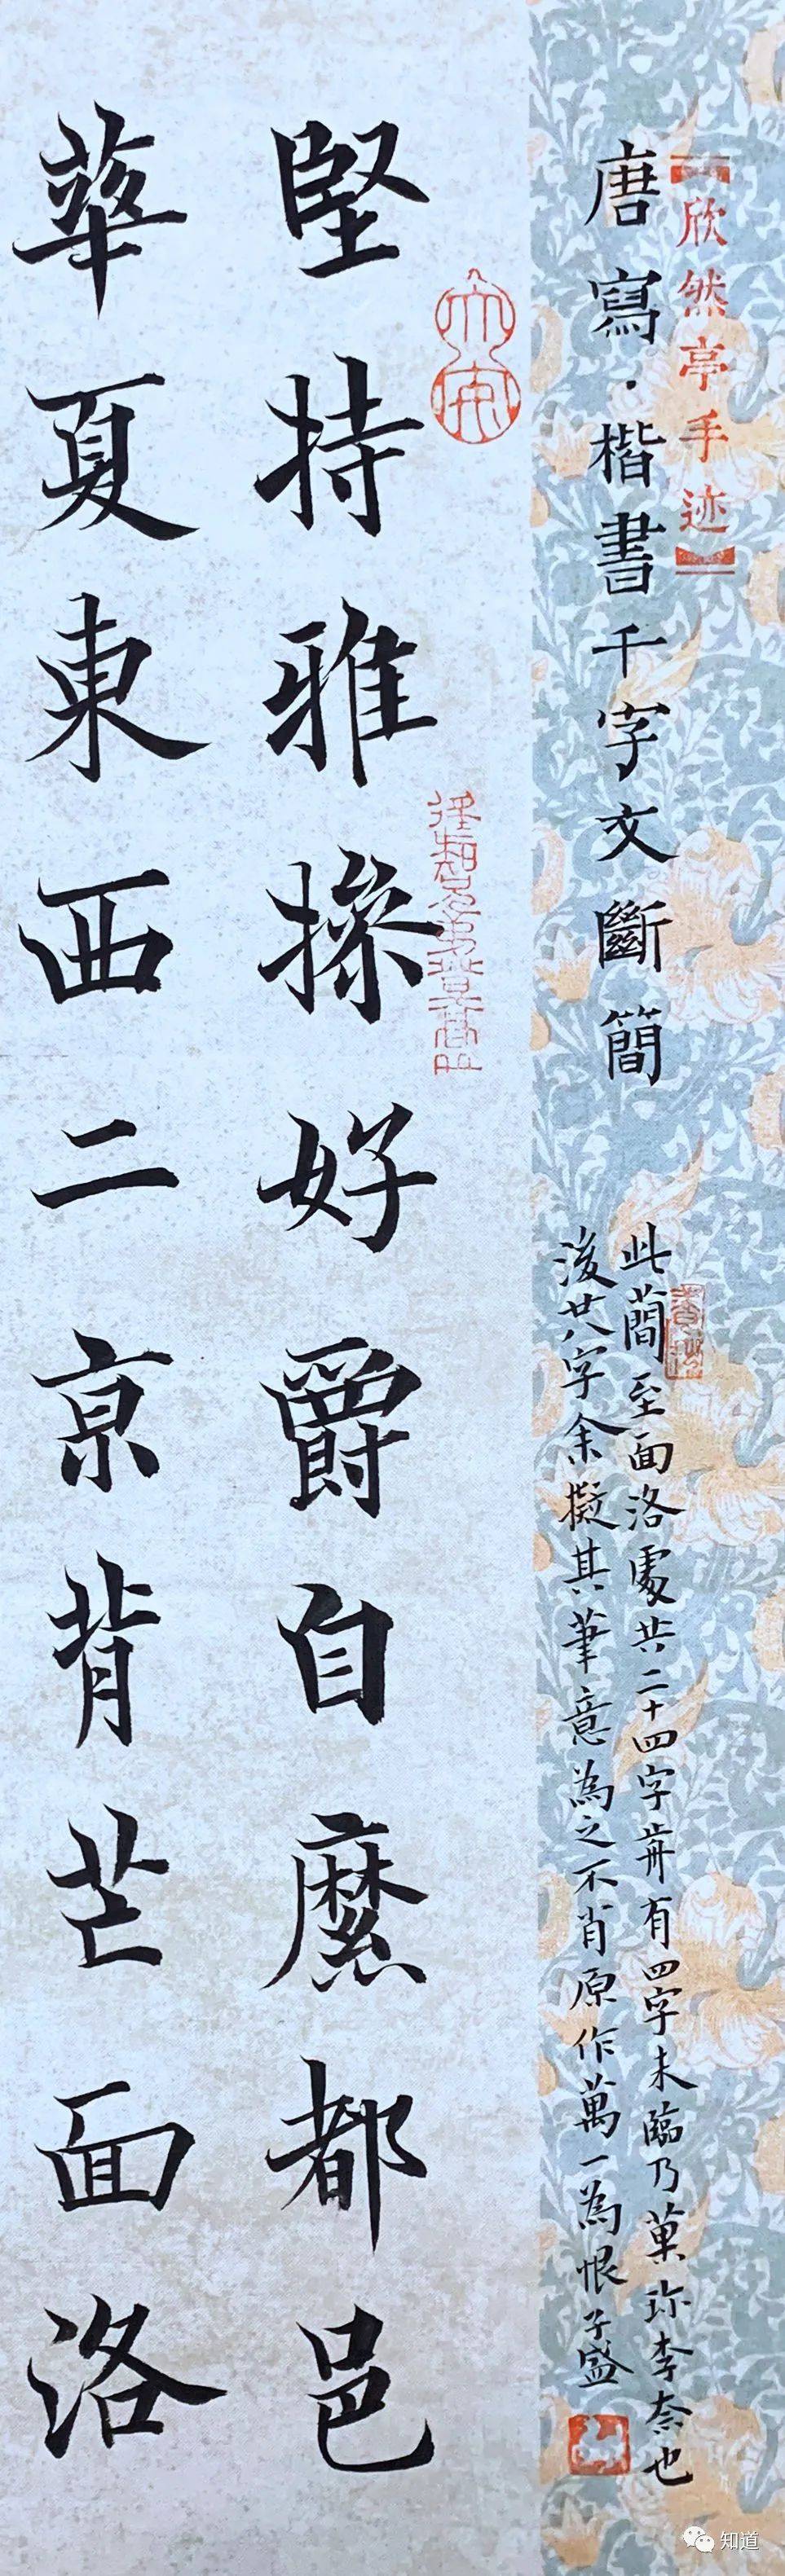 【欣然亭手迹】
唐寫·楷書千字文斷簡
此蕳至面洛處共二十四字前有四字未臨乃菓珎李柰也
後廿八字余擬其筆意為之不肖原作萬一為恨子盛
堅持雅操好爵自縻都邑
華夏東西二京背芒面洛
知道